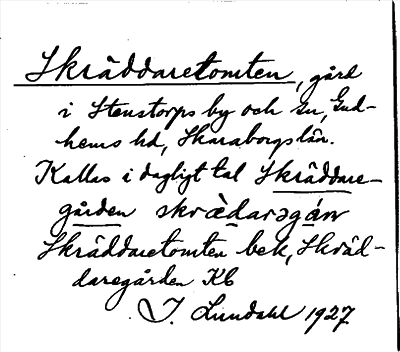 Skräddaretomten, gård
i Stenstorps by och sn, Gud-
hems hd, Skaraborgs län.
Kallas i dagligt tal Skräddare-
gården skrædarəgán
Skräddaretomten bek, Skräd-
daregården Kb
J. Lundahl 1927